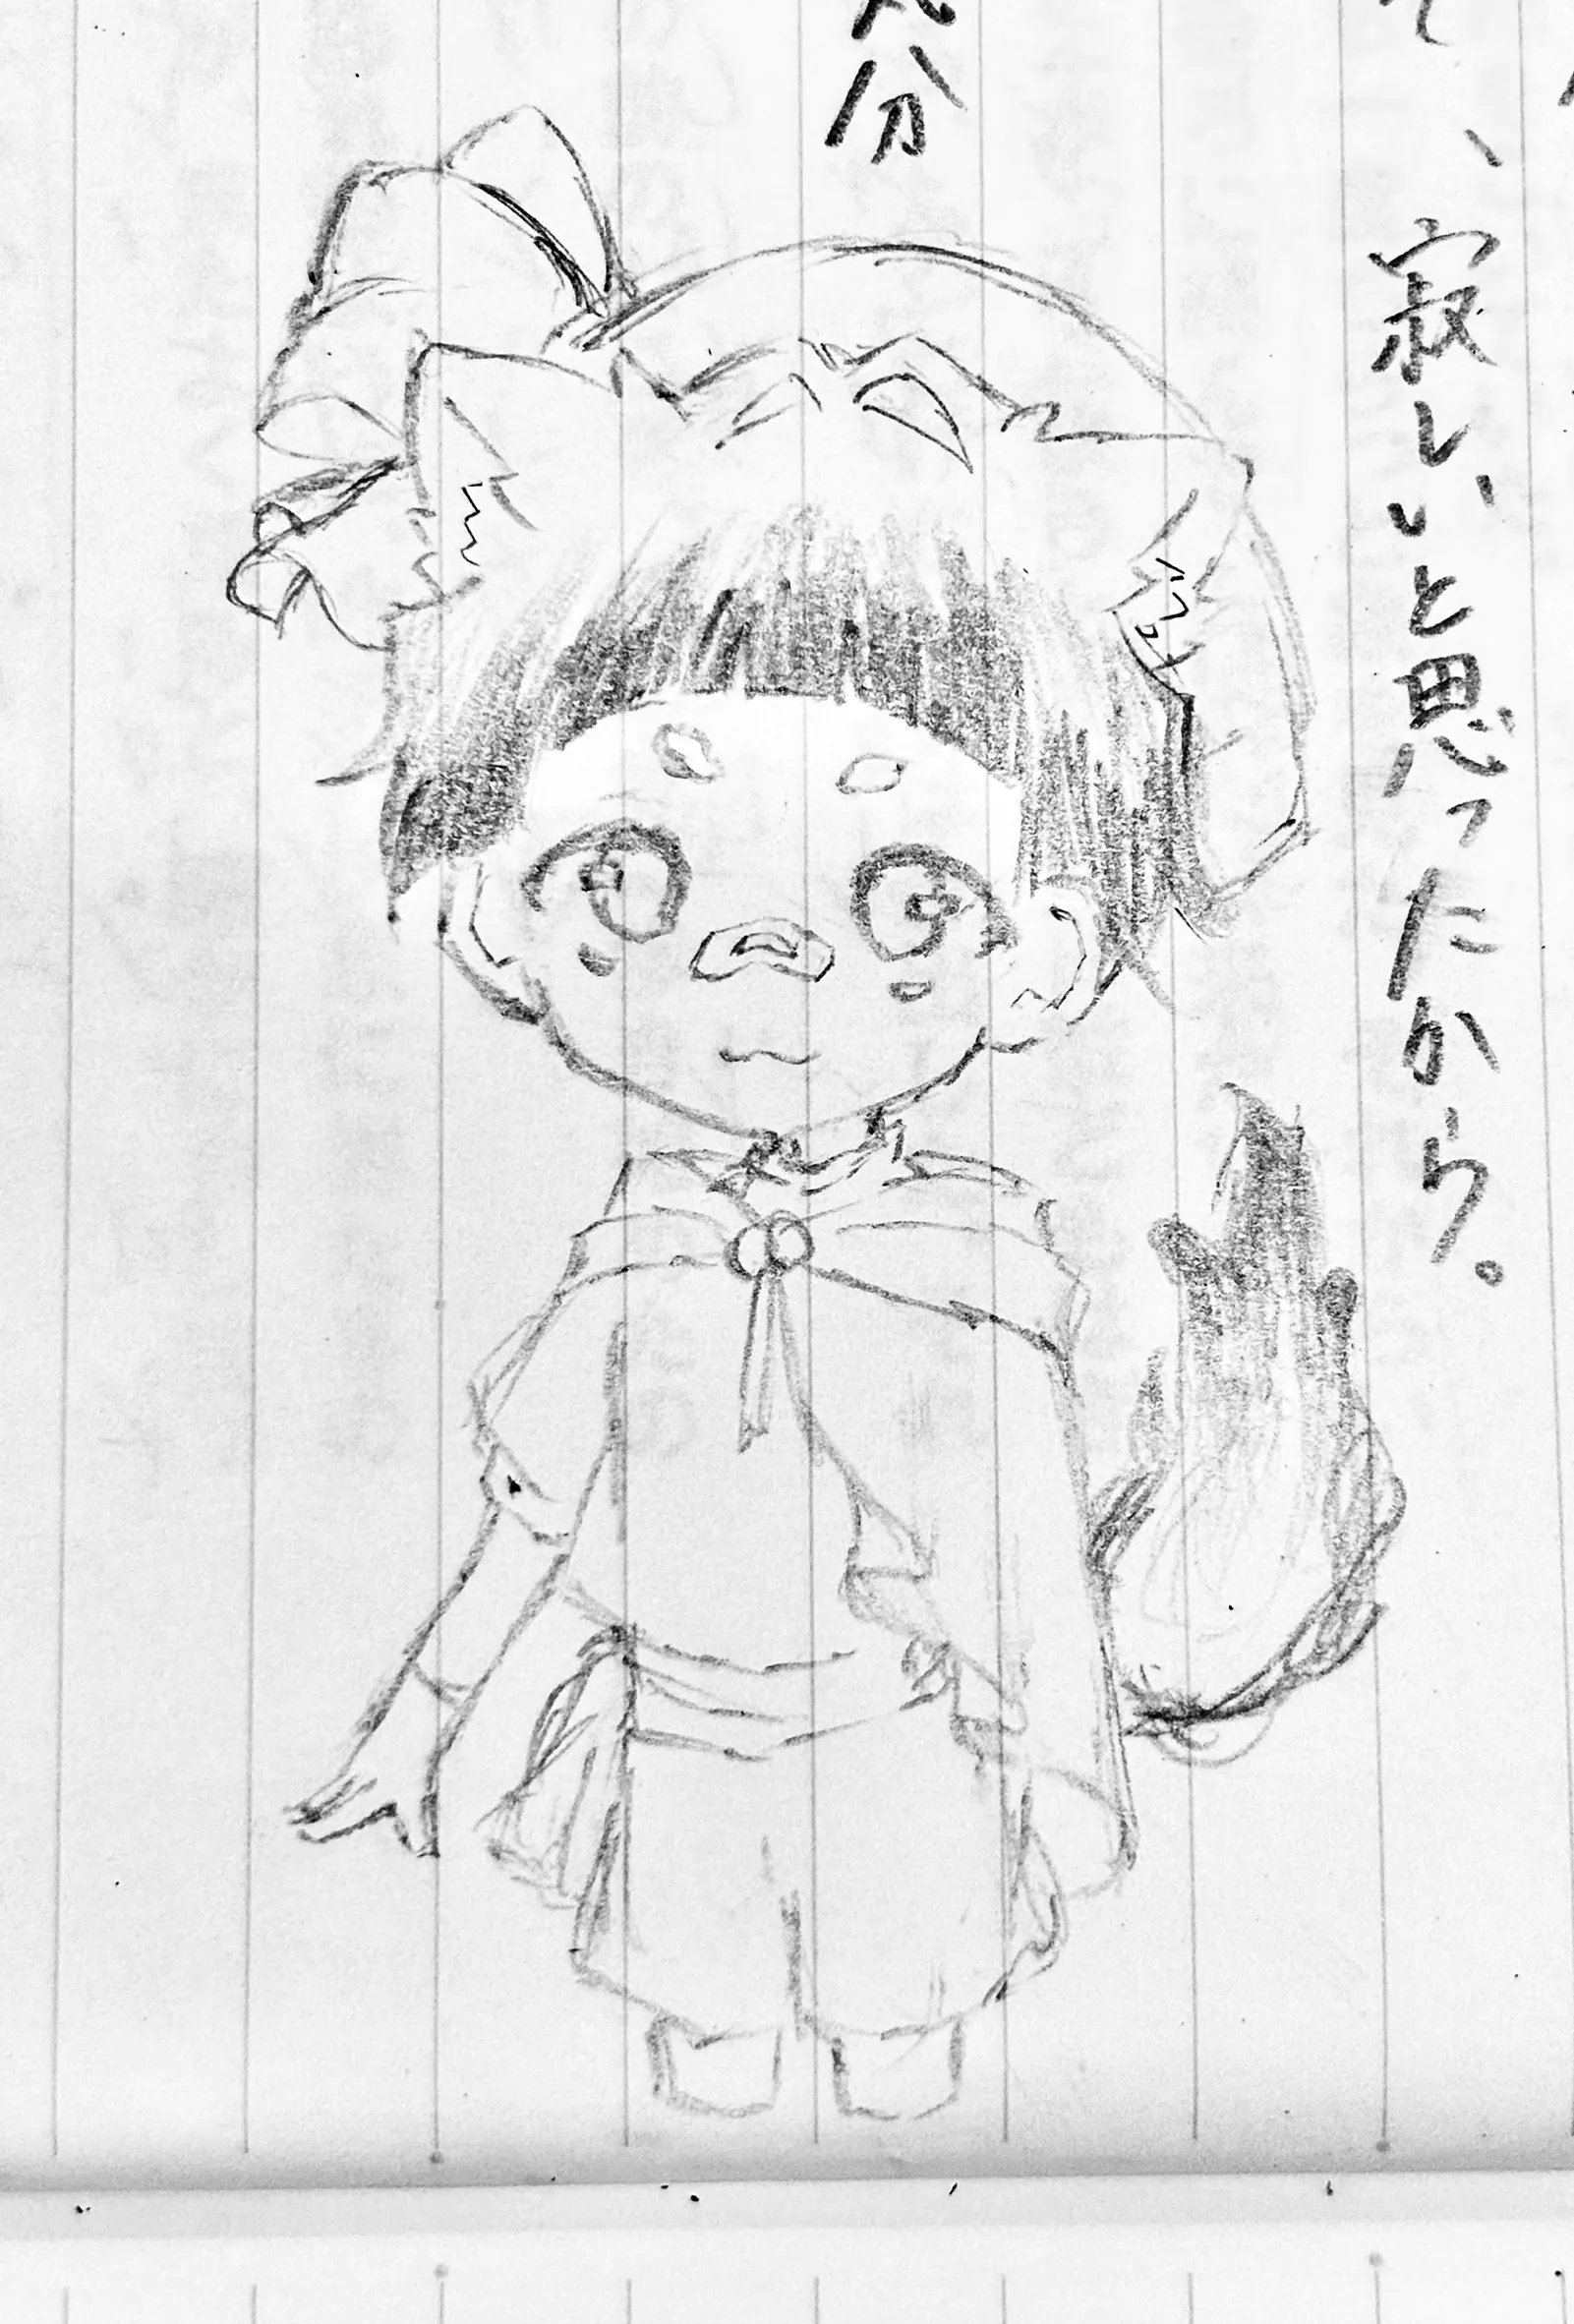 、寂しいと思ったから。
分